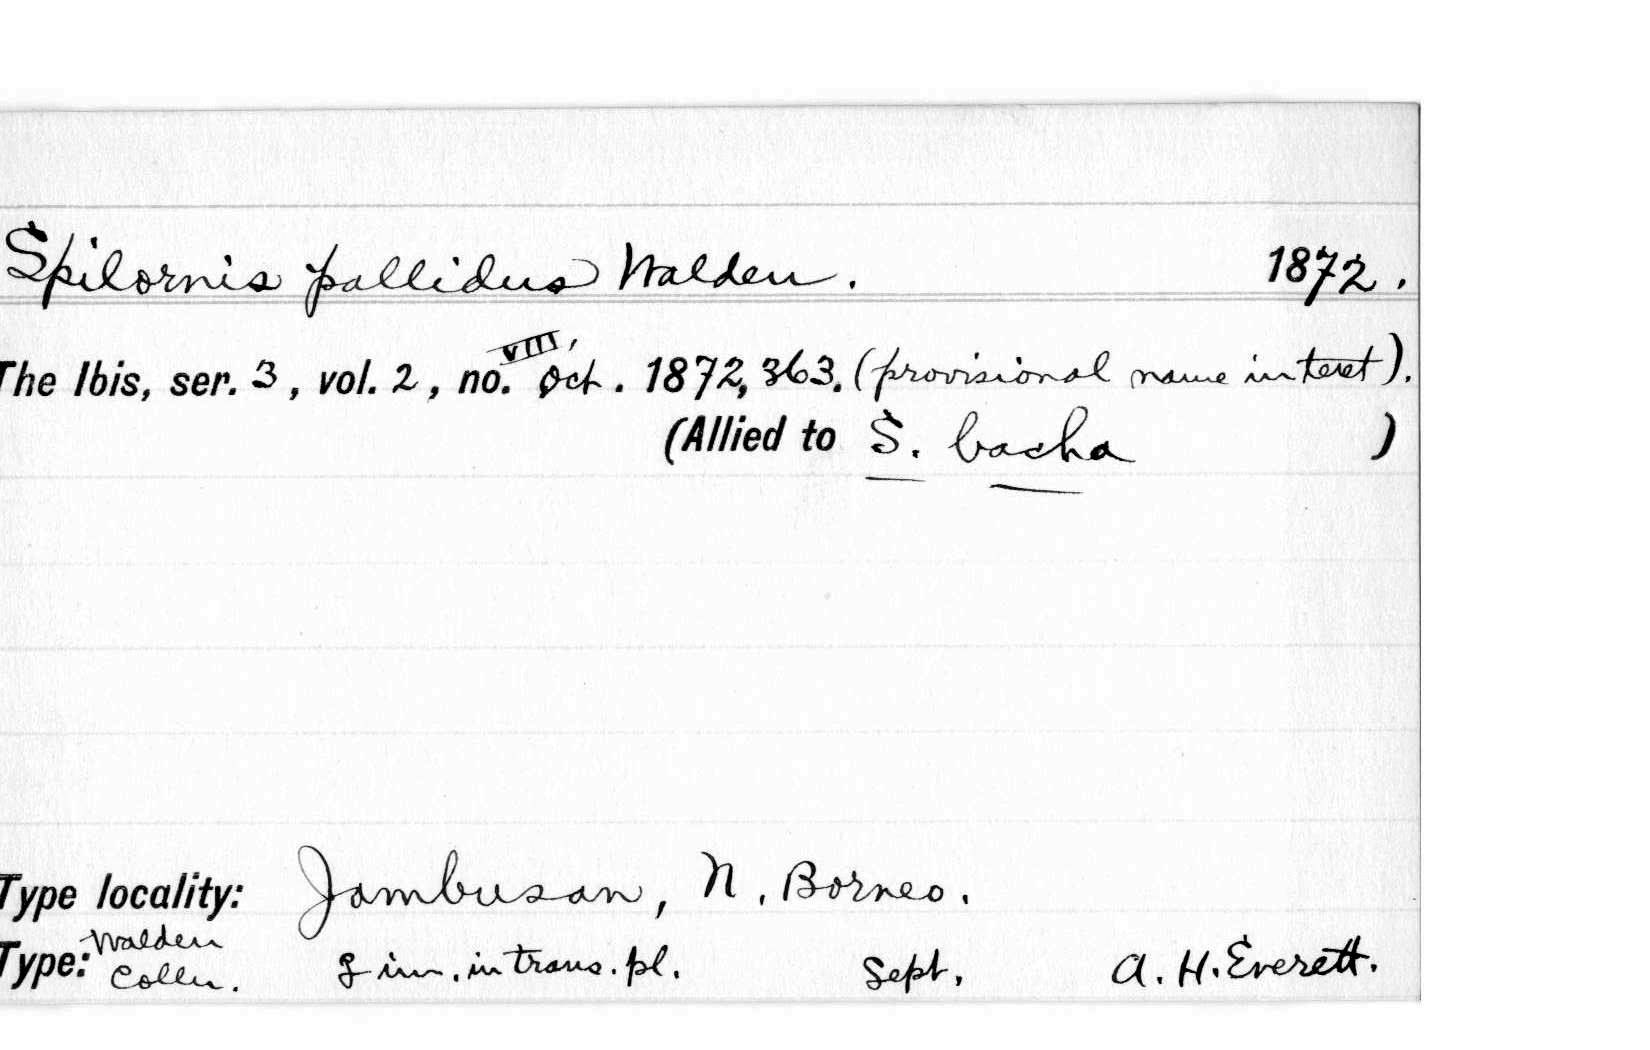 Spilornis pallidus Walden. 1872.
The Ibis, ser. 3, vol. 2, no. VIII, Oct. 1872, 363. (provisional name in text).
(Allied to S. bacha )
Type locality: Jambusan, N. Borneo.
Type: Walden Colln. imm. in trans. pl. Sept. A. H. Everett.